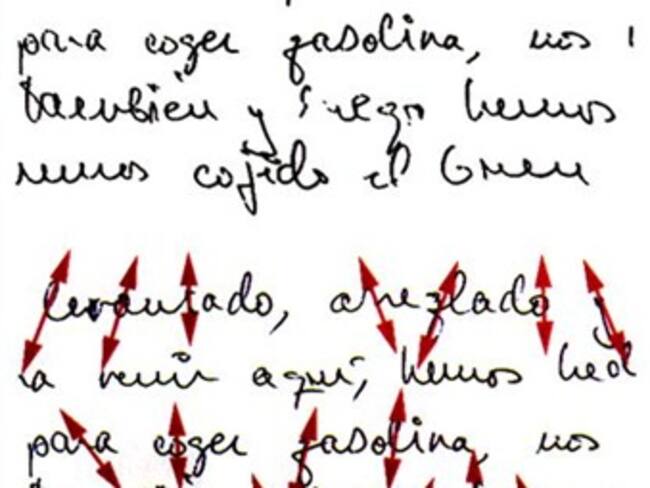 para coger gasolina, nos
también y luego hemos
hemos cogido el
levantado, arreglado y
a venir aquí, hemos hed
para coger gasolina, nos